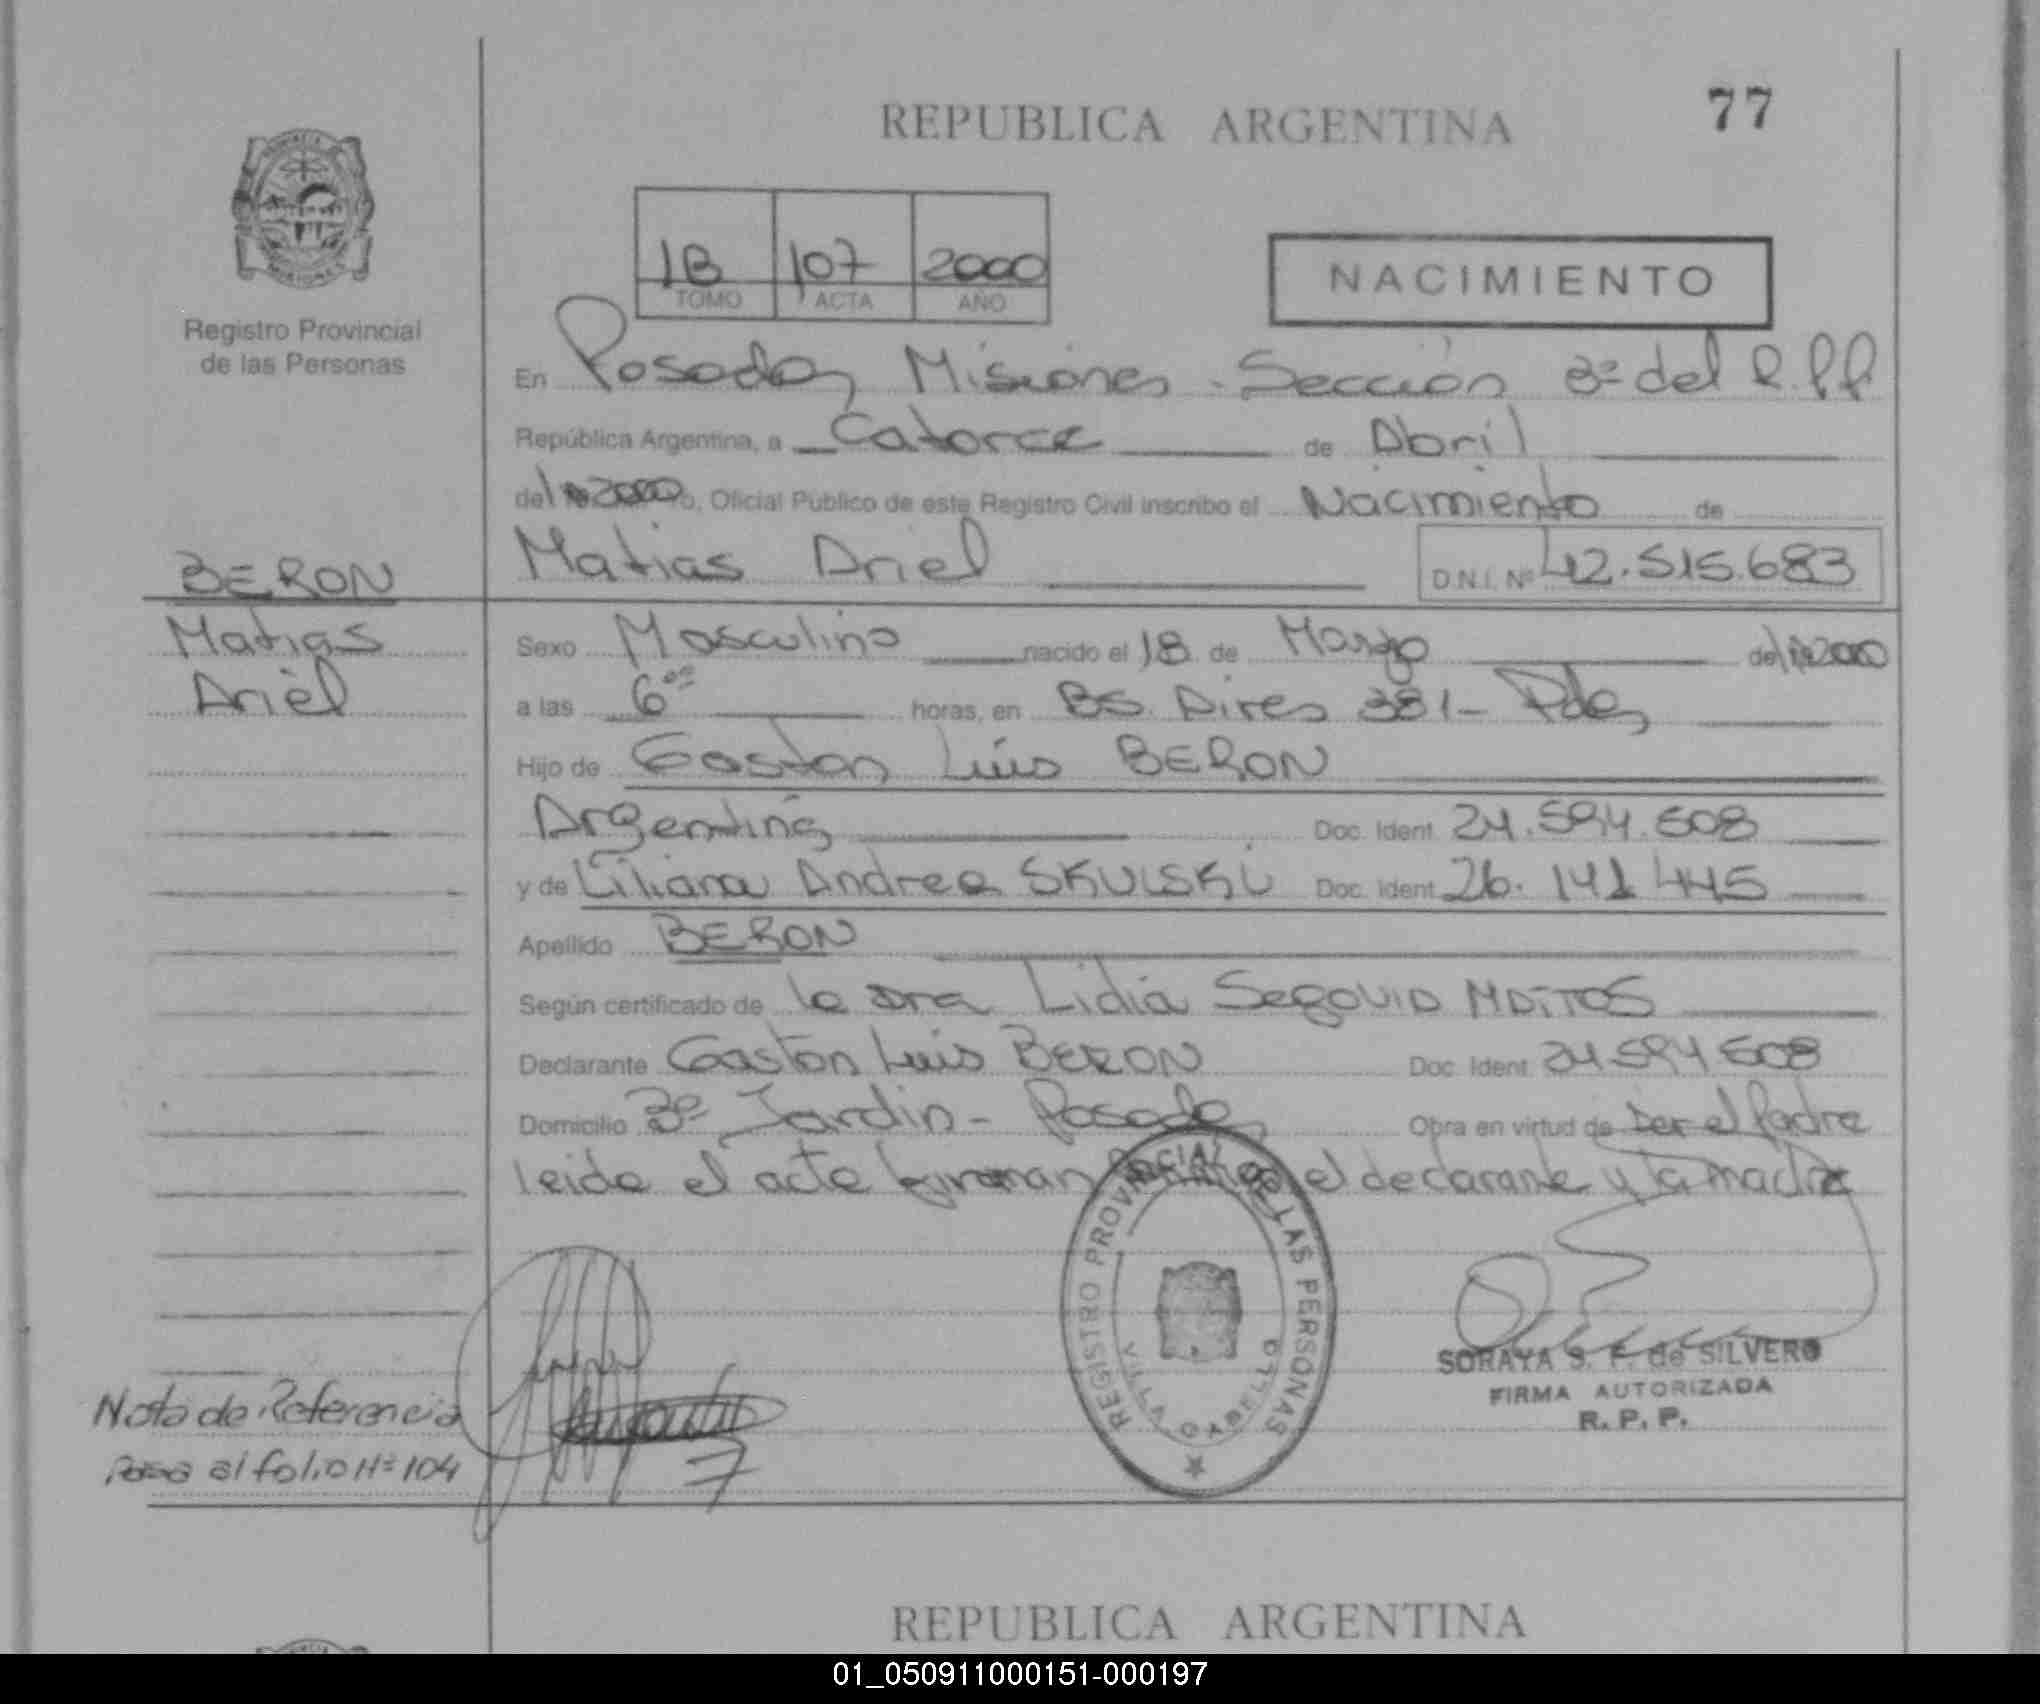 REPUBLICA ARGENTINA
77
1B 107 2000
TOMO ACTA AÑO
NACIMIENTO
Registro Provincial
de las Personas
En Posadas Misiones - Sección 3ª del R.P.P
República Argentina, a Catorce de Abril
del 2000 yo, Oficial Público de este Registro Civil inscribo el Nacimiento de
BERON
Matias Ariel
D.N.I. Nº 42.515.683
Matias
Ariel
Sexo Masculino nacido el 18 de Marzo del 2000
a las 6⁰⁰ horas, en Bs. Aires 381 - Pdas
Hijo de Gaston Luis BERON
Argentina Doc. Ident. 24.594.608
y de Liliana Andrea SKULSKI Doc. Ident. 26.141.445
Apellido BERON
Según certificado de la Dra Lidia Segovia MATTOS
Declarante Gaston Luis BERON Doc. Ident. 24.594.608
Domicilio Bº Jardin - Posadas Obra en virtud de ser el padre
leida el acta firman el declarante y la madre
REGISTRO PROVINCIAL DE LAS PERSONAS
VILLA CABELLO
SORAYA S. F. de SILVERO
FIRMA AUTORIZADA
R. P. P.
Nota de Referencia
Pasa al folio Nº 104
REPUBLICA ARGENTINA
01_050911000151-000197